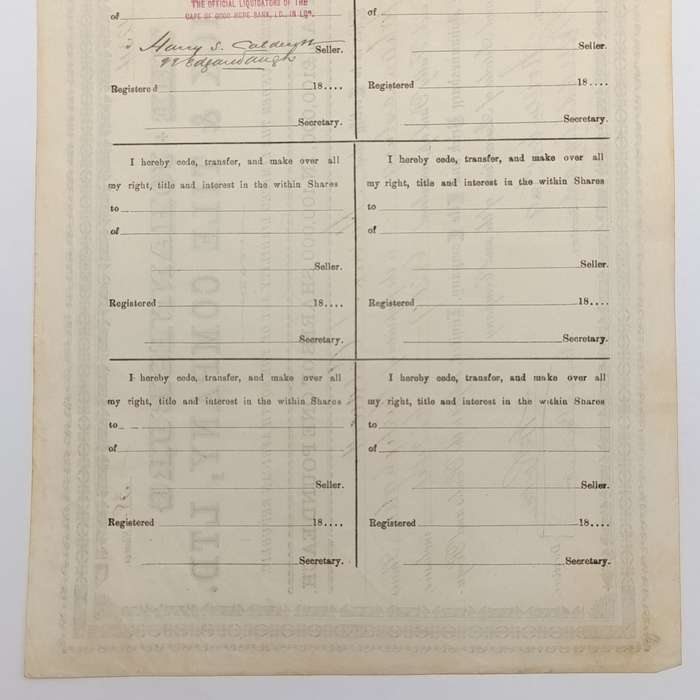 THE OFFICIAL LIQUIDATORS OF THE
of CAPE OF GOOD HOPE BANK, LD., IN LQN.
Harry S. Caldecott Seller.
Registered 18....
Secretary.
of
Seller.
Registered 18....
Secretary.
I hereby cede, transfer, and make over all
my right, title and interest in the within Shares
to
of
Seller.
Registered 18....
Secretary.
I hereby cede, transfer, and make over all
my right, title and interest in the within Shares
to
of
Seller.
Registered 18....
Secretary.
I hereby cede, transfer, and make over all
my right, title and interest in the within Shares
to
of
Seller.
Registered 18....
Secretary.
I hereby cede, transfer, and make over all
my right, title and interest in the within Shares
to
of
Seller.
Registered 18....
Secretary.